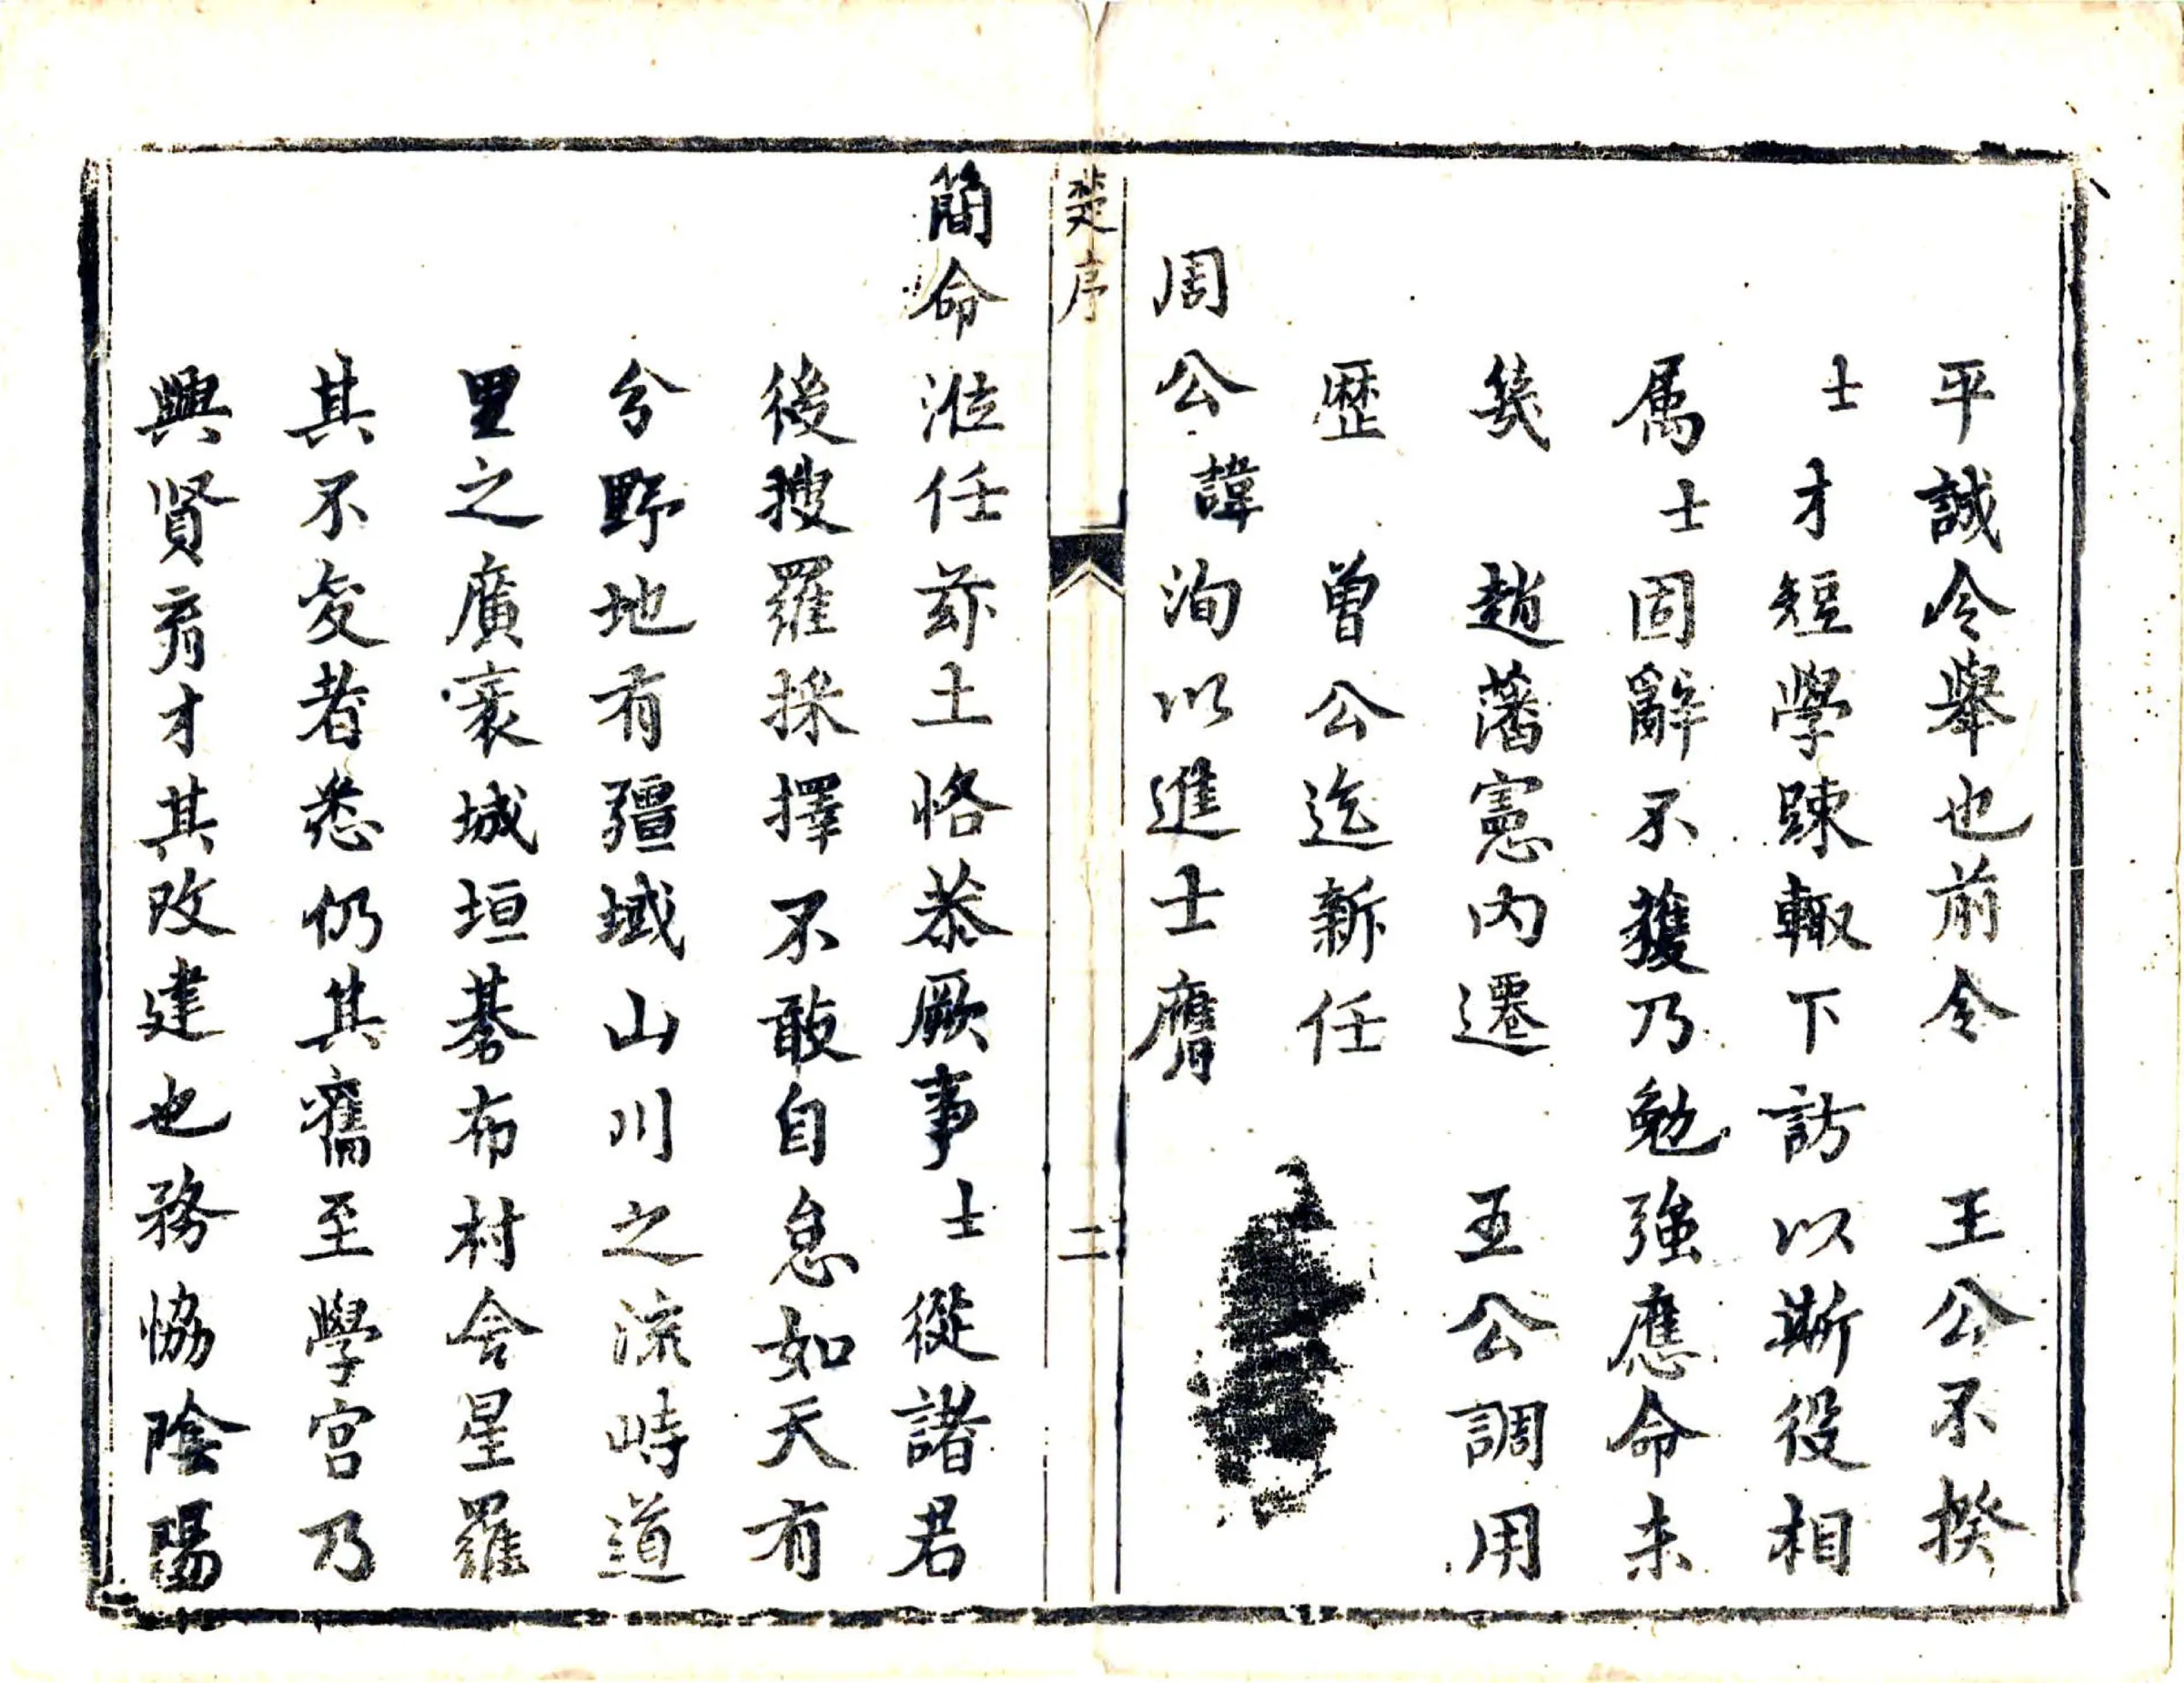 平誠令舉也前令　王公不揆
士才短學踈輙下訪以斯役相
属士固辭不獲乃勉強應命未
幾　趙藩憲內遷　王公調用
歷　曾公迄新任
周公諱洵以進士膺
楚序
二
簡命涖任茲土恪恭厥事士從諸君
後搜羅採擇不敢自怠如天有
分野地有疆域山川之流峙道
里之廣袤城垣碁布村舍星羅
其不变者悉仍其舊至學宮乃
興賢育才其改建也務恊陰陽